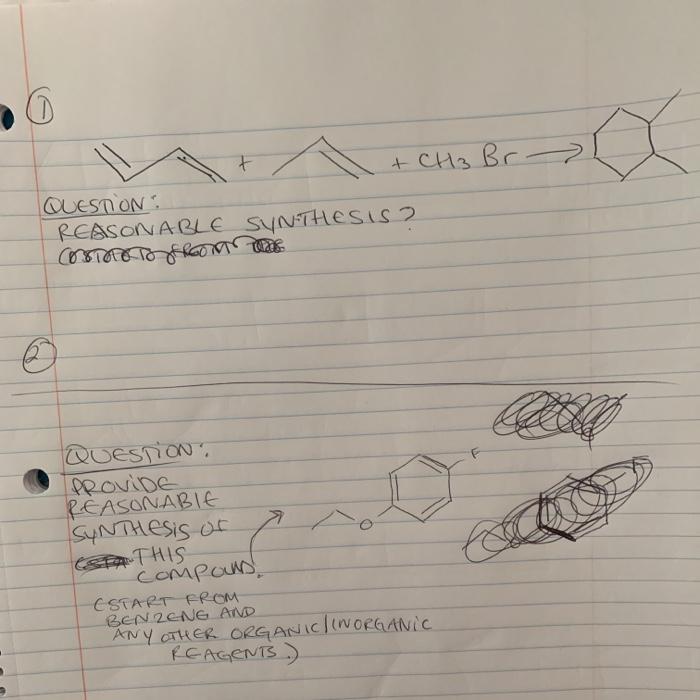 ①
+ + CH3 Br →
QUESTION:
REASONABLE SYNTHESIS?
②
QUESTION:
PROVIDE
REASONABLE
SYNTHESIS OF
THIS
COMPOUND.
F
O
(START FROM
BENZENE AND
ANY OTHER ORGANIC/INORGANIC
REAGENTS)